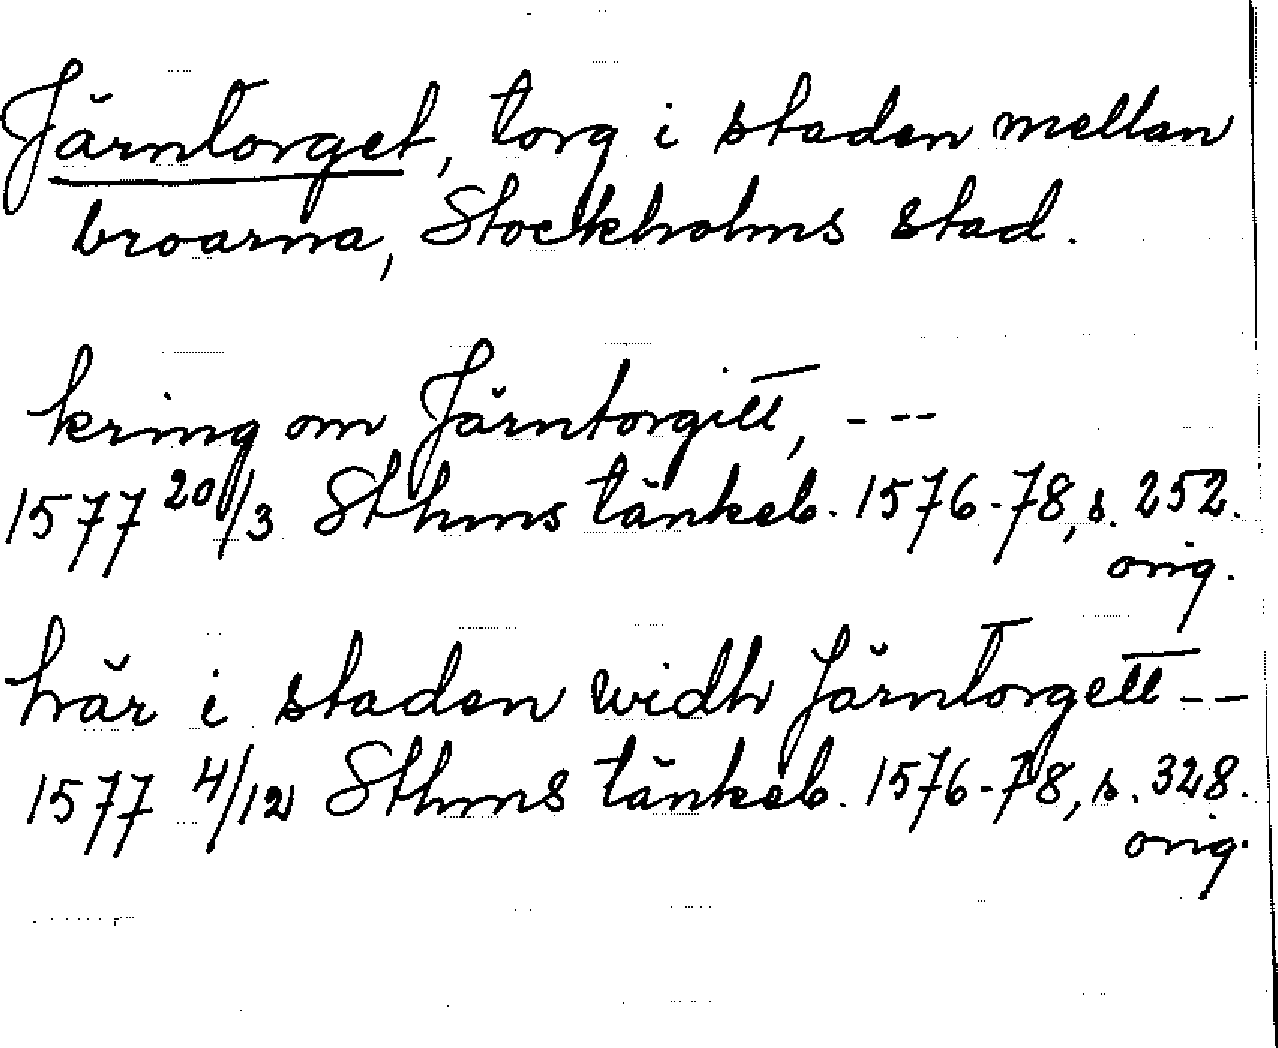 Järntorget, torg i staden mellan
broarna, Stockholms stad.
kring om Järntorgitt, ---
1577 20/3 Sthms tänkeb. 1576-78, s. 252.
orig.
hrär i staden widh Järntorgett --
1577 4/12 Sthms tänkeb. 1576-78, s. 328.
orig.